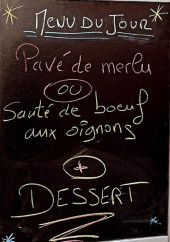 MENU DU JOUR
Pavé de merlu
OU
Sauté de boeuf
aux oignons
+
DESSERT